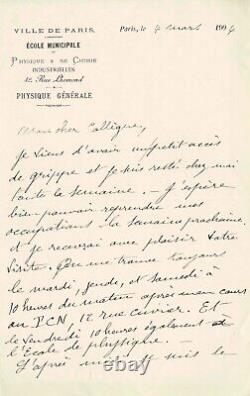 VILLE DE PARIS
ÉCOLE MUNICIPALE
DE
PHYSIQUE & DE CHIMIE
INDUSTRIELLES
42, Rue Lhomond
PHYSIQUE GÉNÉRALE
Paris, le 4 mars 1904
Mon cher Collègue,
je viens d'avoir un petit accès
de grippe et je suis resté chez moi
toute la semaine. J'espère
bien pouvoir reprendre mes
occupations la semaine prochaine
et je recevrai avec plaisir votre
visite. On me trouve toujours
le mardi, jeudi, et samedi à
10 heures du matin après mon cours
au PCN, 12 rue Cuvier. Et
le Vendredi 10 heures également à
l'Ecole de physique.
L'après midi je suis le
© ebay